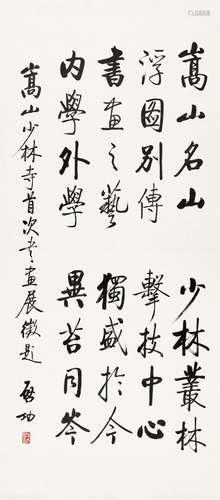 嵩山名山 少林叢林
浮圖別傳 擊技中心
書畫之藝 獨盛於今
內學外學 異苔同岑
嵩山少林寺首次書畫展徵題 啟功